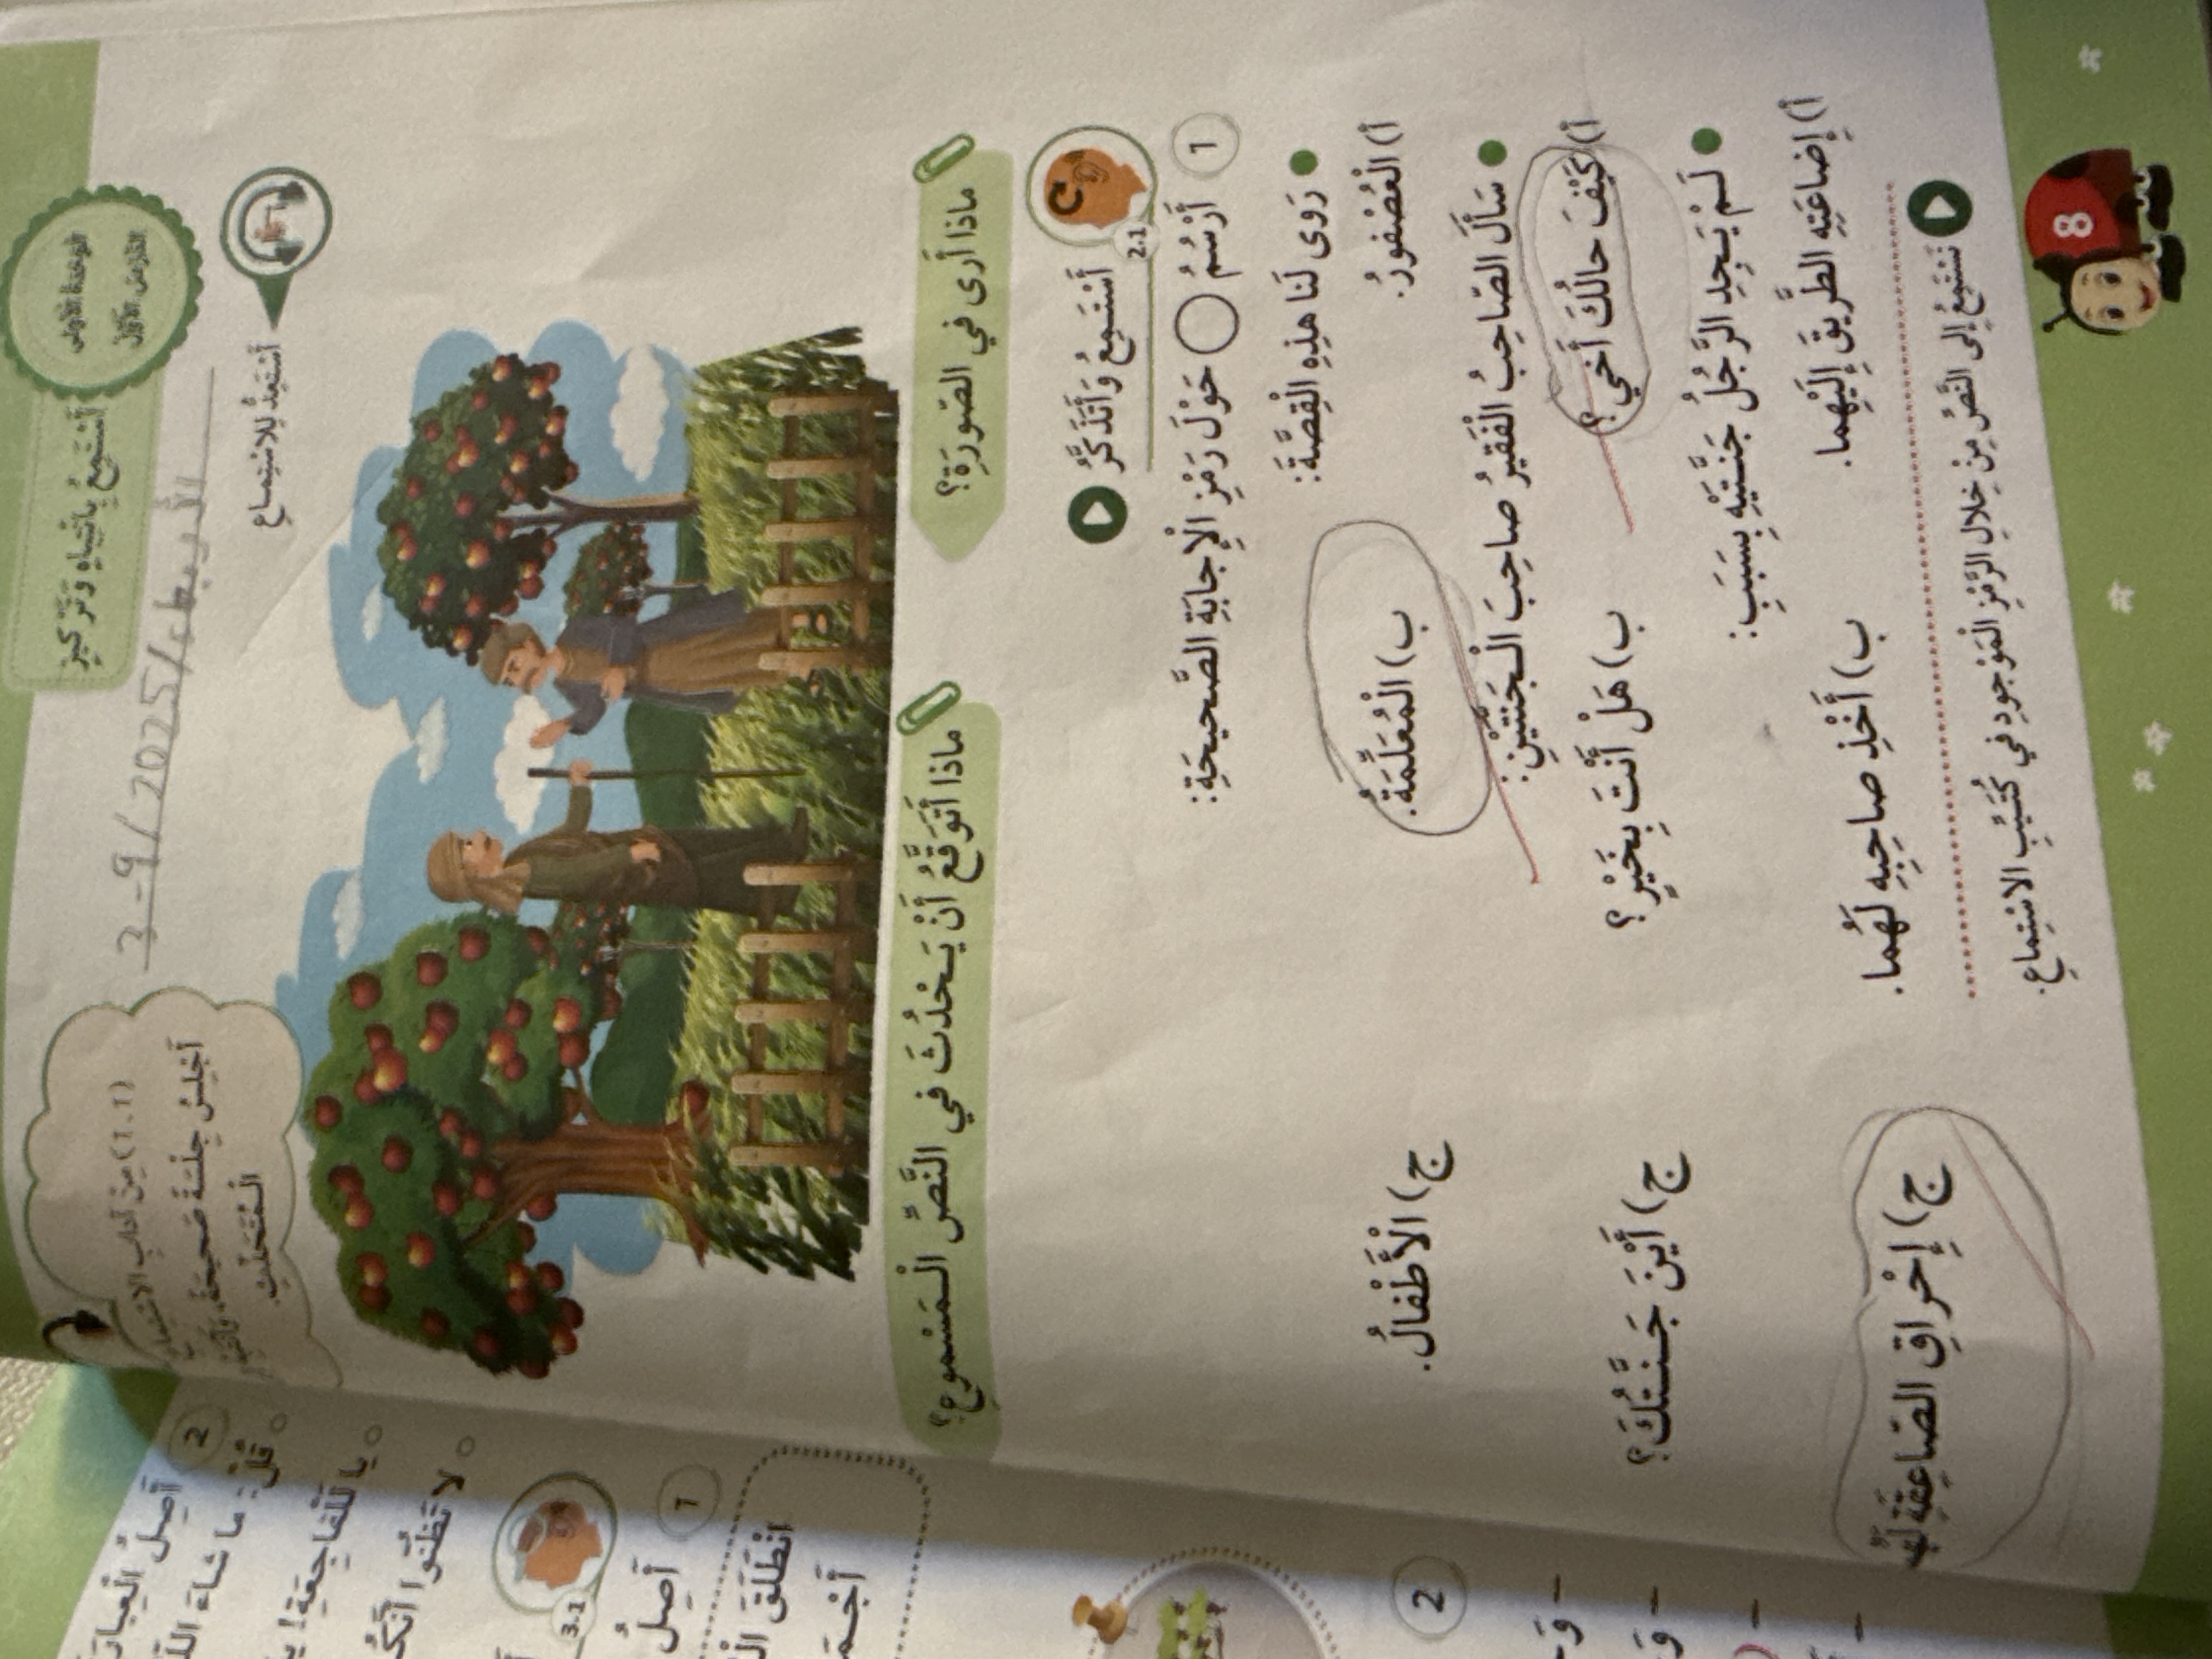 الوحدة الأولى
الدرس الأول
أستمع بانتباه وتركيز
الأربعاء/2025/9-3
أَسْتَعِدُّ لِلاسْتِماعِ
(1.1) مِنْ آدابِ الاسْتِماعِ:
أَجْلِسُ جِلْسَةً صَحيحَةً،
الْمُتَحَدِّثِ.
ماذا أَرى في الصّورَةِ؟
ماذا أَتَوَقَّعُ أَنْ يَحْدُثَ في النَّصِّ الْمَسْموعِ؟
2.1 أَسْتَمِعُ وَأَتَذَكَّرُ
1 أَرْسُمُ حَوْلَ رَمْزِ الْإِجابَةِ الصَّحيحَةِ:
رَوى لَنا هذِهِ الْقِصَّةَ:
أ) الْعُصْفورُ. ب) الْمُعَلِّمَةُ. ج) الْأَطْفالُ.
سَأَلَ الصّاحِبُ الْفَقيرُ صاحِبَ الْجَنَّتَيْنِ:
أ) كَيْفَ حالُكَ أَخي؟ ب) هَلْ أَنْتَ بِخَيْرٍ؟ ج) أَيْنَ جَنَّتُكَ؟
لَمْ يَجِدِ الرَّجُلُ جَنَّتَيْهِ بِسَبَبِ:
أ) إِضاعَتِهِ الطَّريقَ إِلَيْهِما. ب) أَخْذِ صاحِبِهِ لَهُما. ج) إِحْراقِ الصّاعِقَةِ
نَسْتَمِعُ إِلى النَّصِّ مِنْ خِلالِ الرَّمْزِ الْمَوْجودِ في كُتَيِّبِ الاسْتِماعِ.
8
2 أَصِلُ
قُلْ: ما شاءَ
يا لَلْفاجِعَةِ!
لا تَظُنّوا
3.1
1 أَصِلُ
انْطَلَقَ
2